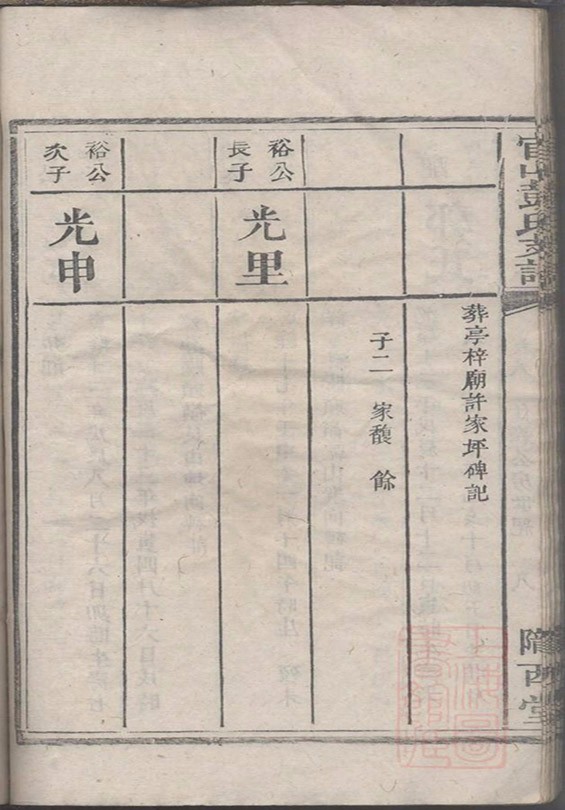 官山彭氏支譜
隴西堂
葬亭梓廟許家坪碑記
子二 家馥 餘
裕公長子
光里
裕公次子
光申